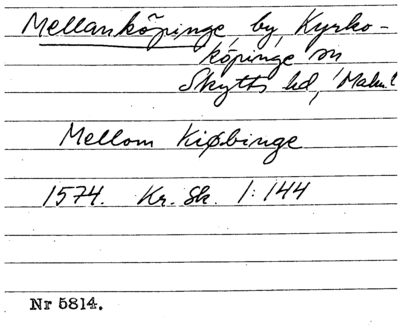 Mellanköpinge, by, Kyrko-
köpinge sn
Skytts hd, Malm.l
Mellom Kiøbinge
1574. Kr. Sk. 1:144
Nr 5814.